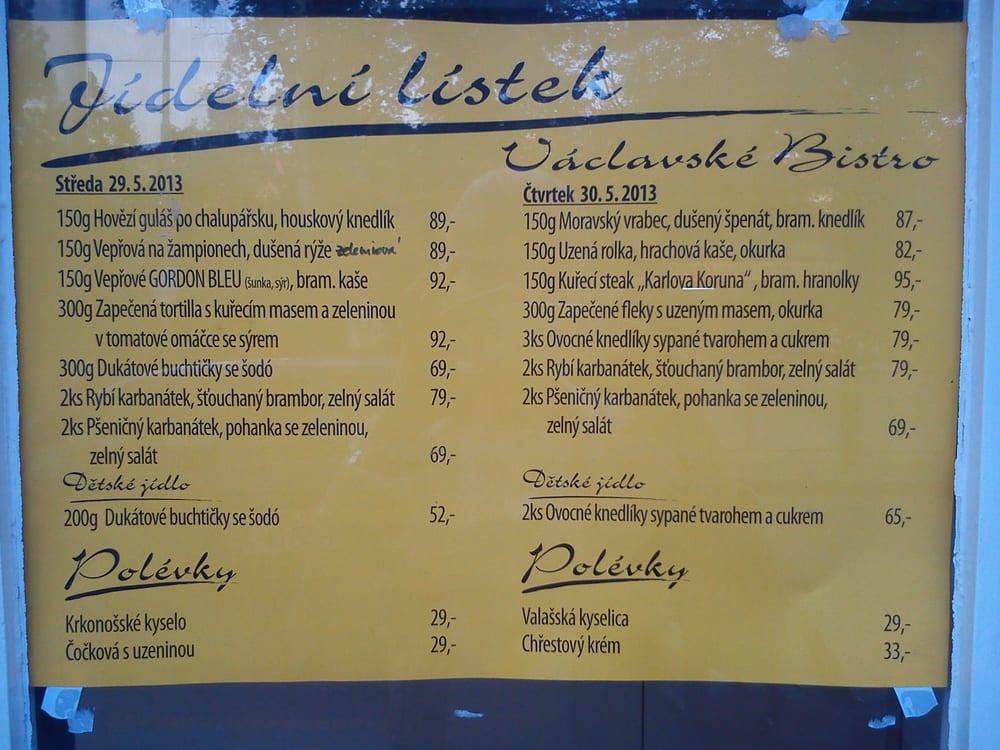 Jídelní lístek
Václavské Bistro
Středa 29.5.2013
150g Hovězí guláš po chalupářsku, houskový knedlík 89,-
150g Vepřová na žampionech, dušená rýže zeleninová 89,-
150g Vepřové GORDON BLEU (šunka, sýr), bram. kaše 92,-
300g Zapečená tortilla s kuřecím masem a zeleninou
v tomatové omáčce se sýrem 92,-
300g Dukátové buchtičky se šodó 69,-
2ks Rybí karbanátek, šťouchaný brambor, zelný salát 79,-
2ks Pšeničný karbanátek, pohanka se zeleninou,
zelný salát 69,-
Dětské jídlo
200g Dukátové buchtičky se šodó 52,-
Polévky
Krkonošské kyselo 29,-
Čočková s uzeninou 29,-
Čtvrtek 30.5.2013
150g Moravský vrabec, dušený špenát, bram. knedlík 87,-
150g Uzená rolka, hrachová kaše, okurka 82,-
150g Kuřecí steak „Karlova Koruna", bram. hranolky 95,-
300g Zapečené fleky s uzeným masem, okurka 79,-
3ks Ovocné knedlíky sypané tvarohem a cukrem 79,-
2ks Rybí karbanátek, šťouchaný brambor, zelný salát 79,-
2ks Pšeničný karbanátek, pohanka se zeleninou,
zelný salát 69,-
Dětské jídlo
2ks Ovocné knedlíky sypané tvarohem a cukrem 65,-
Polévky
Valašská kyselica 29,-
Chřestový krém 33,-